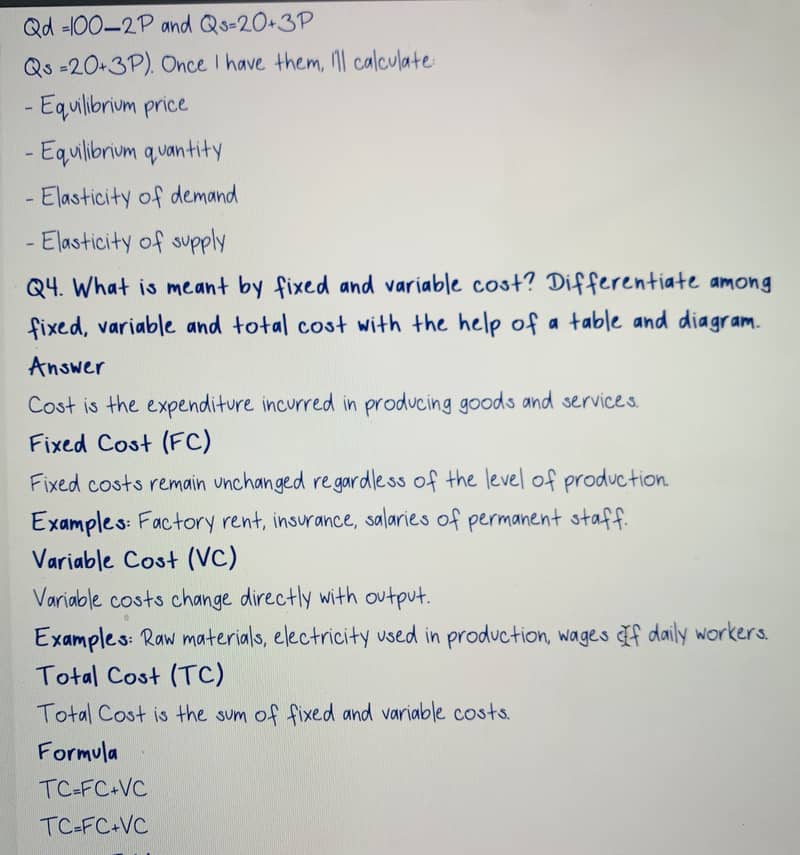 Qd =100–2P and Qs=20+3P
Qs =20+3P). Once I have them, I'll calculate:
- Equilibrium price
- Equilibrium quantity
- Elasticity of demand
- Elasticity of supply
Q4. What is meant by fixed and variable cost? Differentiate among
fixed, variable and total cost with the help of a table and diagram.
Answer
Cost is the expenditure incurred in producing goods and services.
Fixed Cost (FC)
Fixed costs remain unchanged regardless of the level of production.
Examples: Factory rent, insurance, salaries of permanent staff.
Variable Cost (VC)
Variable costs change directly with output.
Examples: Raw materials, electricity used in production, wages of daily workers.
Total Cost (TC)
Total Cost is the sum of fixed and variable costs.
Formula
TC=FC+VC
TC=FC+VC